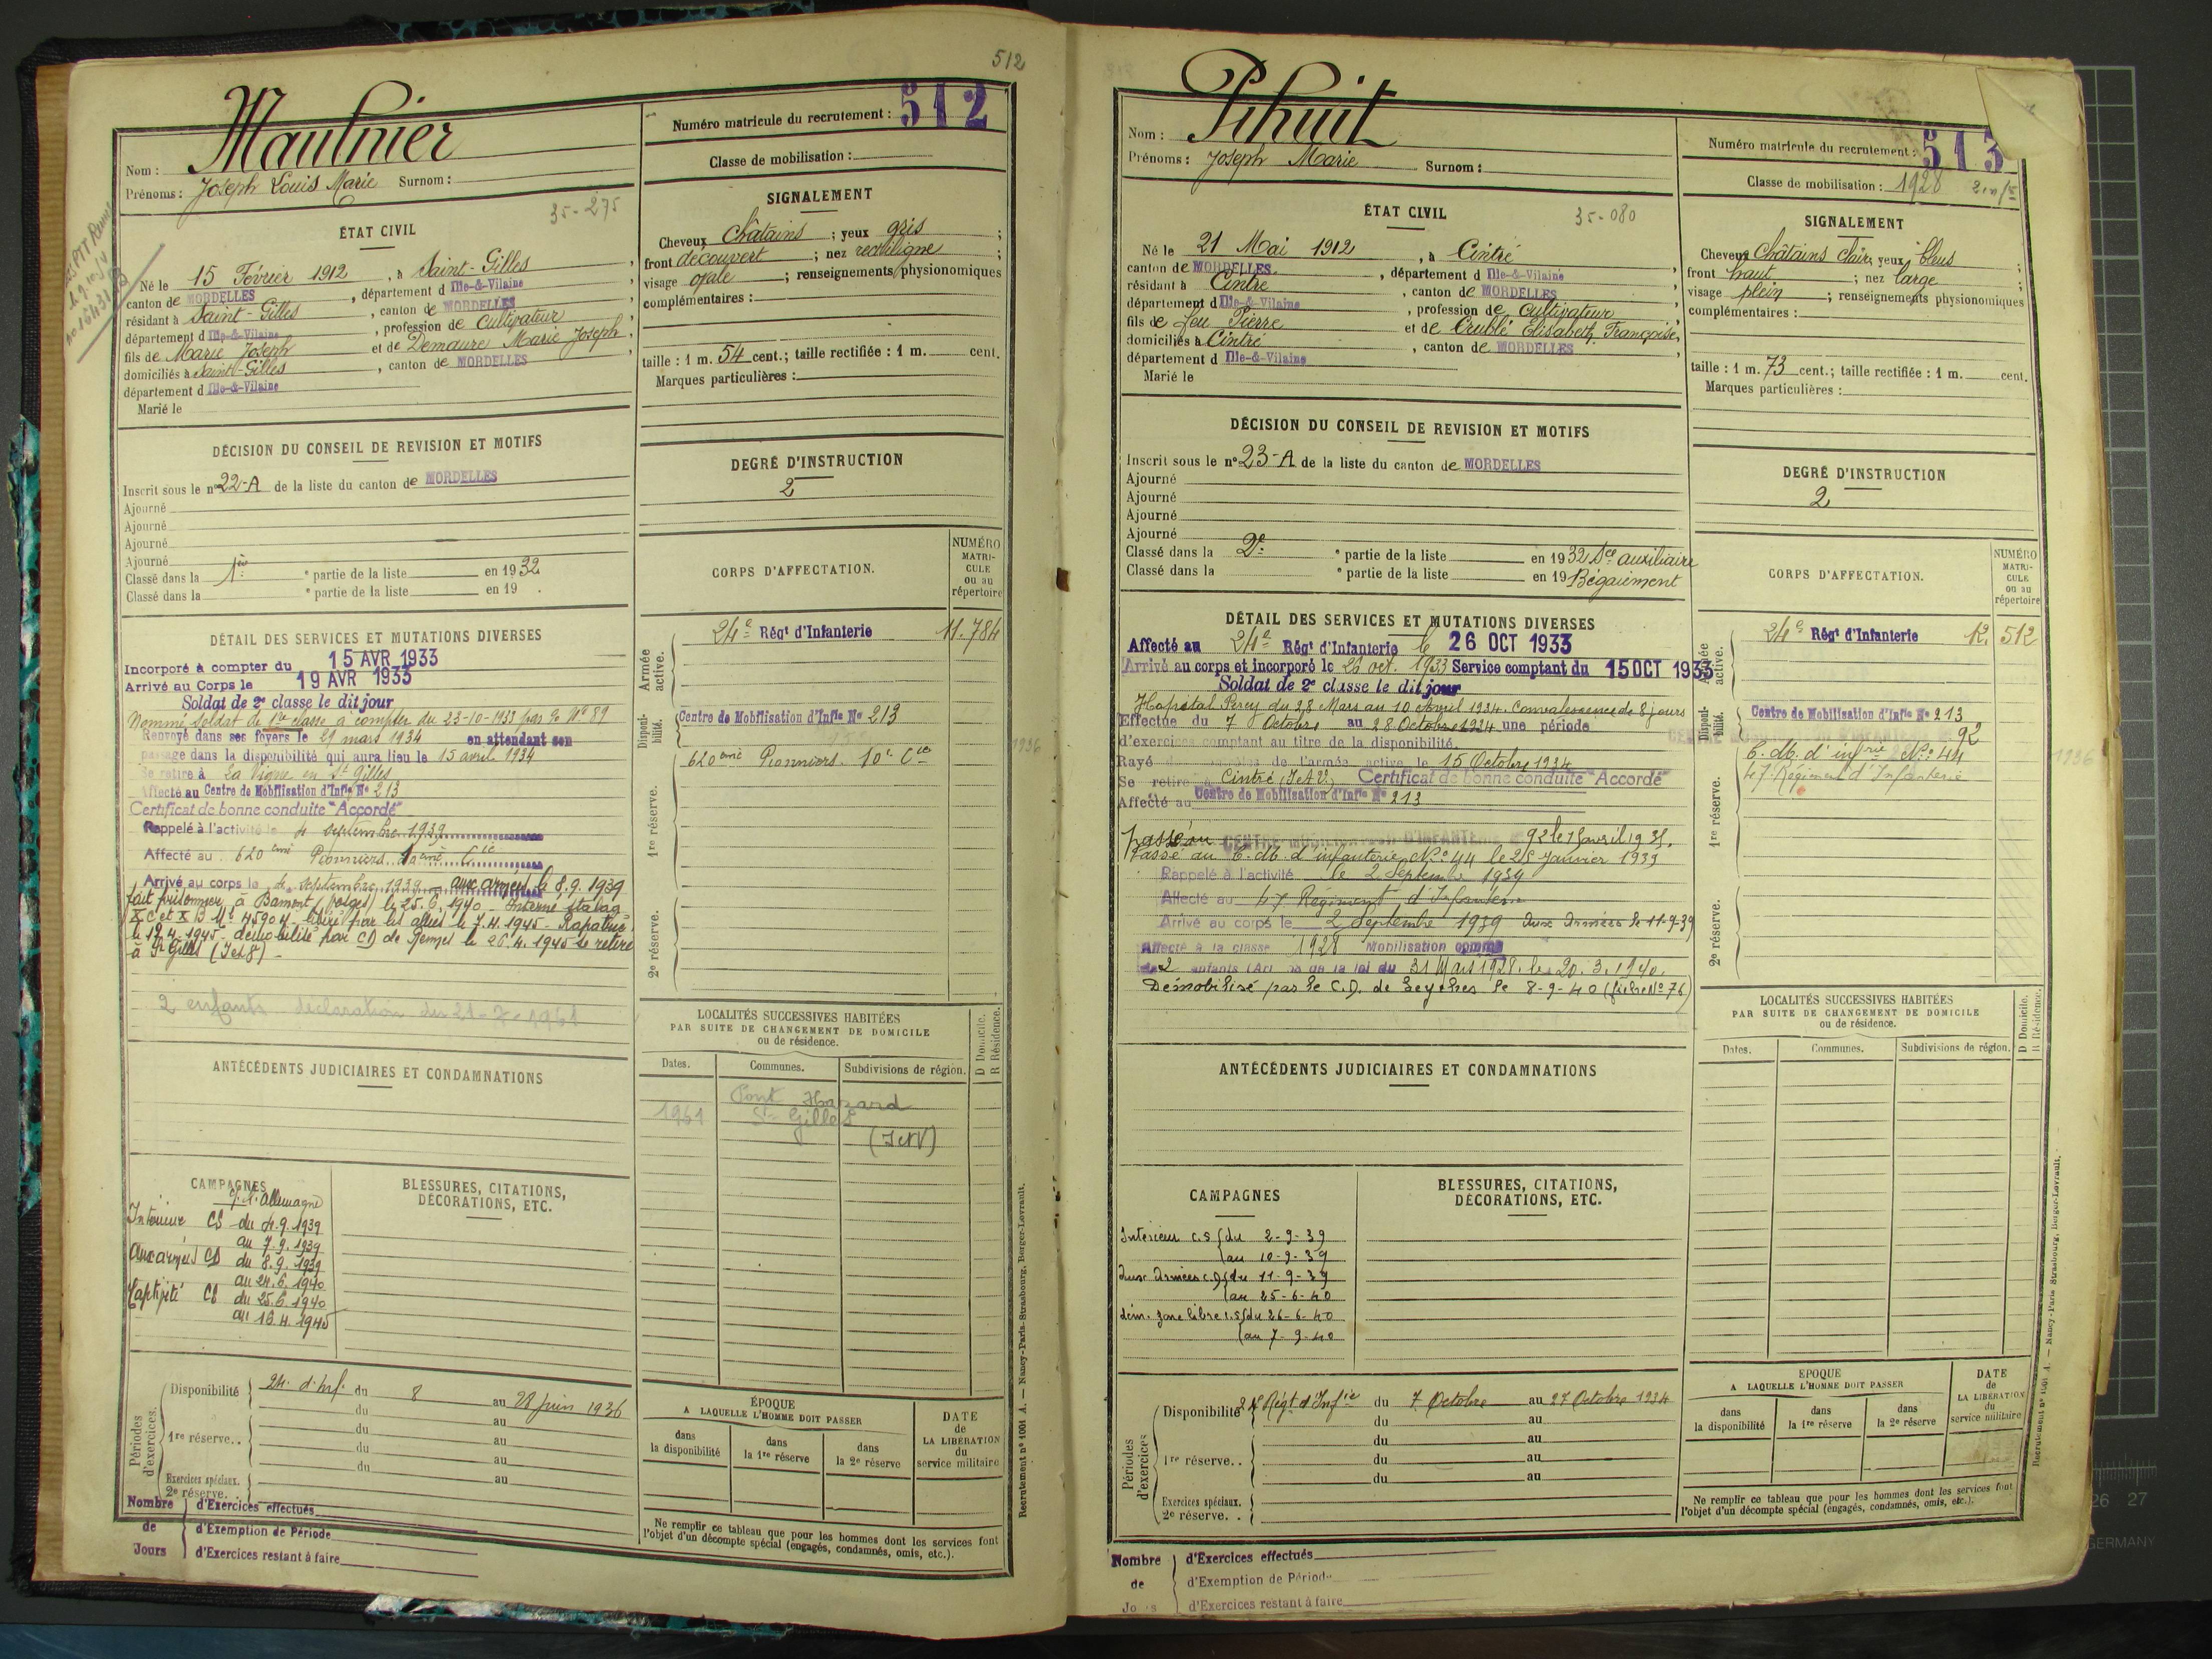 512
Maulnier
Nom :
Prénoms : Joseph Louis Marie Surnom :
35-275
ÉTAT CIVIL
Né le 15 Février 1912, à Saint-Gilles,
canton de MORDELLES, département d Ille-&-Vilaine
résidant à Saint-Gilles, canton de MORDELLES
département d Ille-&-Vilaine, profession de Cultivateur
fils de Marie Joseph et de Demaure Marie Joseph,
domiciliés à Saint-Gilles, canton de MORDELLES
département d Ille-&-Vilaine
Marié le
DÉCISION DU CONSEIL DE REVISION ET MOTIFS
Inscrit sous le n° 22-A de la liste du canton de MORDELLES
Ajourné
Ajourné
Ajourné
Ajourné
Classé dans la 1re ° partie de la liste en 1932
Classé dans la ° partie de la liste en 19 .
DÉTAIL DES SERVICES ET MUTATIONS DIVERSES
Incorporé à compter du 15 AVR 1933
Arrivé au Corps le 19 AVR 1933
Soldat de 2e classe le dit jour
Nommé soldat de 1re classe à compter du 23-10-1933 N° 89
Renvoyé dans ses foyers le 29 mars 1934 en attendant son
passage dans la disponibilité qui aura lieu le 15 avril 1934
Se retire à La Vigne en St Gilles
Affecté au Centre de Mobilisation d'Infie N° 213
Certificat de bonne conduite "Accordé"
Rappelé à l'activité le 4 septembre 1939
Affecté au 620ème Pionniers 10ème Cie
Arrivé au corps le 4 septembre 1939 - aux armées le 8.9.1939
fait prisonnier à Bamont (Vosges) le 25.6.1940 - Interné stalag
X C et X B N° 45904 - libéré par les alliés le 7.4.1945 - Rapatrié
le 17.4.1945 - démobilisé par CD de Rennes le 26.4.1945 se retire
à St Gilles (I et V) -
2 enfants déclaration du 21-7-1961
ANTÉCÉDENTS JUDICIAIRES ET CONDAMNATIONS
CAMPAGNES
c/ l'Allemagne
Intérieur CS du 4.9.1939
au 7.9.1939
aux armées CD du 8.9.1939
au 24.6.1940
Captivité CS du 25.6.1940
au 16.4.1945
BLESSURES, CITATIONS,
DÉCORATIONS, ETC.
Périodes d'exercices.
Disponibilité 24e d'Inf. du 8 au 28 juin 1936
du au
1re réserve. . du au
du au
du au
Exercices spéciaux.
2e réserve. .
Nombre de Jours
d'Exercices effectués
d'Exemption de Période
d'Exercices restant à faire
Numéro matricule du recrutement : 512
Classe de mobilisation :
SIGNALEMENT
Cheveux Châtains ; yeux gris ;
front découvert ; nez rectiligne ;
visage ovale ; renseignements physionomiques
complémentaires :
taille : 1 m. 54 cent.; taille rectifiée : 1 m. cent.
Marques particulières :
DEGRÉ D'INSTRUCTION
2
CORPS D'AFFECTATION.
NUMÉRO MATRI-CULE ou au répertoire
Armée active.
24e Régt d'Infanterie 11.784
Disponi-bilité.
Centre de Mobilisation d'Infie N° 213
620ème Pionniers 10e Cie
1re réserve.
2e réserve.
LOCALITÉS SUCCESSIVES HABITÉES
PAR SUITE DE CHANGEMENT DE DOMICILE
ou de résidence.
Dates. Communes. Subdivisions de région. D Domicile. R Résidence.
1961 Pont Hazard
St Gilles
(I et V)
ÉPOQUE
A LAQUELLE L'HOMME DOIT PASSER
dans la disponibilité
dans la 1re réserve
dans la 2e réserve
DATE de LA LIBÉRATION du service militaire
Ne remplir ce tableau que pour les hommes dont les services font
l'objet d'un décompte spécial (engagés, condamnés, omis, etc.).
Recrutement n° 1001 A. — Nancy-Paris-Strasbourg, Berger-Levrault.
Pihuit
Nom :
Prénoms : Joseph Marie Surnom :
35-080
ÉTAT CIVIL
Né le 21 Mai 1912, à Cintré
canton de MORDELLES, département d Ille-&-Vilaine
résidant à Cintré, canton de MORDELLES
département d Ille-&-Vilaine, profession de Cultivateur
fils de feu Pierre et de Crublé Elisabeth, Françoise,
domiciliés à Cintré, canton de MORDELLES
département d Ille-&-Vilaine
Marié le
DÉCISION DU CONSEIL DE REVISION ET MOTIFS
Inscrit sous le n° 23-A de la liste du canton de MORDELLES
Ajourné
Ajourné
Ajourné
Ajourné
Classé dans la 2e ° partie de la liste en 1932 Sce auxiliaire
Classé dans la ° partie de la liste en 19 Bégaiement
DÉTAIL DES SERVICES ET MUTATIONS DIVERSES
Affecté au 24e Régt d'Infanterie le 26 OCT 1933
Arrivé au corps et incorporé le 26 oct. 1933 Service comptant du 15 OCT 1933
Soldat de 2e classe le dit jour
Hopital Percy du 28 Mars au 10 Avril 1934. Convalescence de 8 jours
Effectue du 7 Octobre au 28 Octobre 1934 une période
d'exercices comptant au titre de la disponibilité.
Rayé de l'armée active le 15 Octobre 1934
Se retire à Cintré (I et V) Certificat de bonne conduite "Accordé"
Affecté au Centre de Mobilisation d'Infie N° 213
Passé au CENTRE MOBILISATION D'INFANTERIE N° 92 le 15 avril 1935.
Passé au C. M. d'infanterie N° 44 le 25 Janvier 1939
Rappelé à l'activité le 2 Septembre 1939
Affecté au 47 Régiment d'Infanterie
Arrivé au corps le 2 Septembre 1939 Aux Armées le 11-9-39
Affecté à la classe 1928 Mobilisation comme
de 2 enfants (Art de la loi du 31 Mars 1928. le 20.3.1940.
Démobilisé par le C.D. de Seyches le 8-9-40 (fiche N° 76)
ANTÉCÉDENTS JUDICIAIRES ET CONDAMNATIONS
CAMPAGNES
Intérieur c.s (du 2-9-39
(au 10-9-39
Aux Armées c.D (du 11-9-39
(au 25-6-40
dém. zone libre c.s (du 26-6-40
(au 7-9-40
BLESSURES, CITATIONS,
DÉCORATIONS, ETC.
Périodes d'exercices
Disponibilité 24 Régt d'Infie du 7 Octobre au 27 Octobre 1934
du au
1re réserve. . du au
du au
du au
Exercices spéciaux.
2e réserve. .
Nombre de Jours
d'Exercices effectués
d'Exemption de Période
d'Exercices restant à faire
Numéro matricule du recrutement : 513
Classe de mobilisation : 1928
SIGNALEMENT
Cheveux Châtains clairs yeux bleus ;
front haut ; nez large ;
visage plein ; renseignements physionomiques
complémentaires :
taille : 1 m. 73 cent.; taille rectifiée : 1 m. cent.
Marques particulières :
DEGRÉ D'INSTRUCTION
2
CORPS D'AFFECTATION.
NUMÉRO MATRI-CULE ou au répertoire
Armée active.
24e Régt d'Infanterie 12. 512
Disponi-bilité.
Centre de Mobilisation d'Infie N° 213
92
C. M. d'infrie N° 44
47e Régiment d'Infanterie
1936
1re réserve.
2e réserve.
LOCALITÉS SUCCESSIVES HABITÉES
PAR SUITE DE CHANGEMENT DE DOMICILE
ou de résidence.
Dates. Communes. Subdivisions de région. D Domicile. R Résidence.
EPOQUE
A LAQUELLE L'HOMME DOIT PASSER
dans la disponibilité
dans la 1re réserve
dans la 2e réserve
DATE de LA LIBÉRATION du service militaire
Ne remplir ce tableau que pour les hommes dont les services font
l'objet d'un décompte spécial (engagés, condamnés, omis, etc.).
Recrutement n° 1001 A. — Nancy-Paris-Strasbourg, Berger-Levrault.
26 27
GERMANY